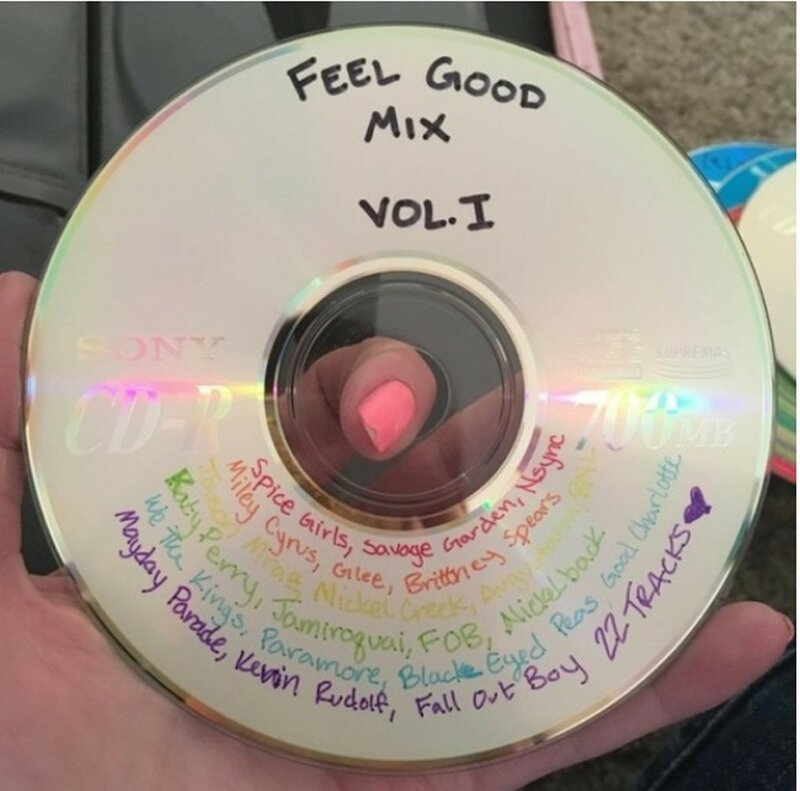 FEEL GOOD
MIX
VOL. I
SONY
SUPREMAS
CD-R
700MB
Spice Girls, Savage Garden, Nsync
Miley Cyrus, Glee, Brittney Spears
Jason Mraz Mickel Creek,
Katy Perry, Jamiroquai, FOB, Nickelback
We The Kings, Paramore, Black Eyed Peas Good Charlotte
Mayday Parade, Kevin Rudolf, Fall Out Boy 22 TRACKS